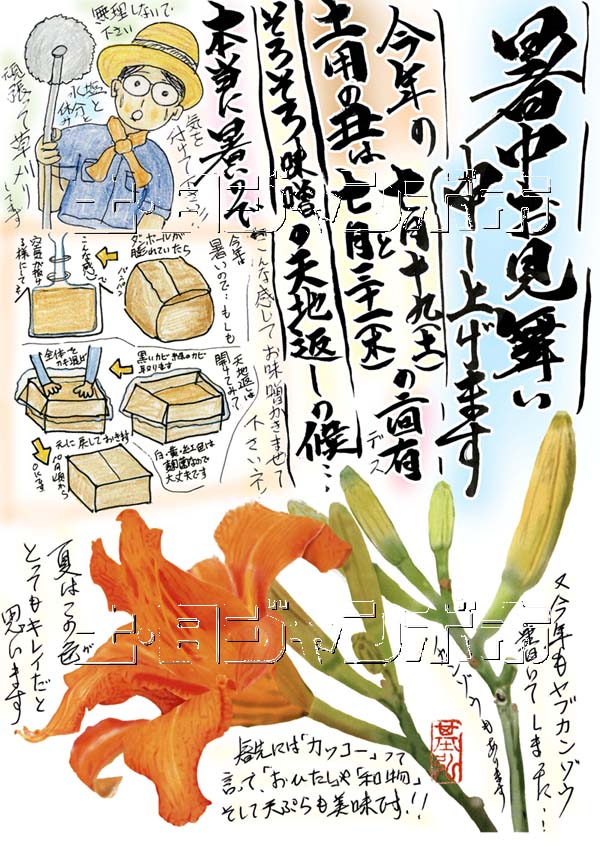 暑中お見舞い
申し上げます
今年の七月十九(土)
と
土用の丑は七月三十一(木)の二回有
デス
そろそろ味噌の天地返しの候…
本当に暑いので
こんな感じでお味噌かきまぜて下さいネ!
無理しないで
下さい
水塩と
休分と
気を
付けて
頑張って草刈り
してます
今年は
暑いので…もしも
ダンボールが
膨れていたら
パンパン
こんな感じ
空気が抜け
る様にして
天地返しは
開けてみて
黒いカビ
取ります
全体を
白・黄・紅色は
麹菌なので
大丈夫です
元に戻しておき
10月頃から
OKです
又今年もヤブカンゾウ
書いてしまった…!
夏はこの色が
とってもキレイだと
思います
唇先には「カッコー」って
言って、「おひたしや「和物」
そして天ぷらも美味です!!
土・日ジャンボ市
土・日ジャンボ市